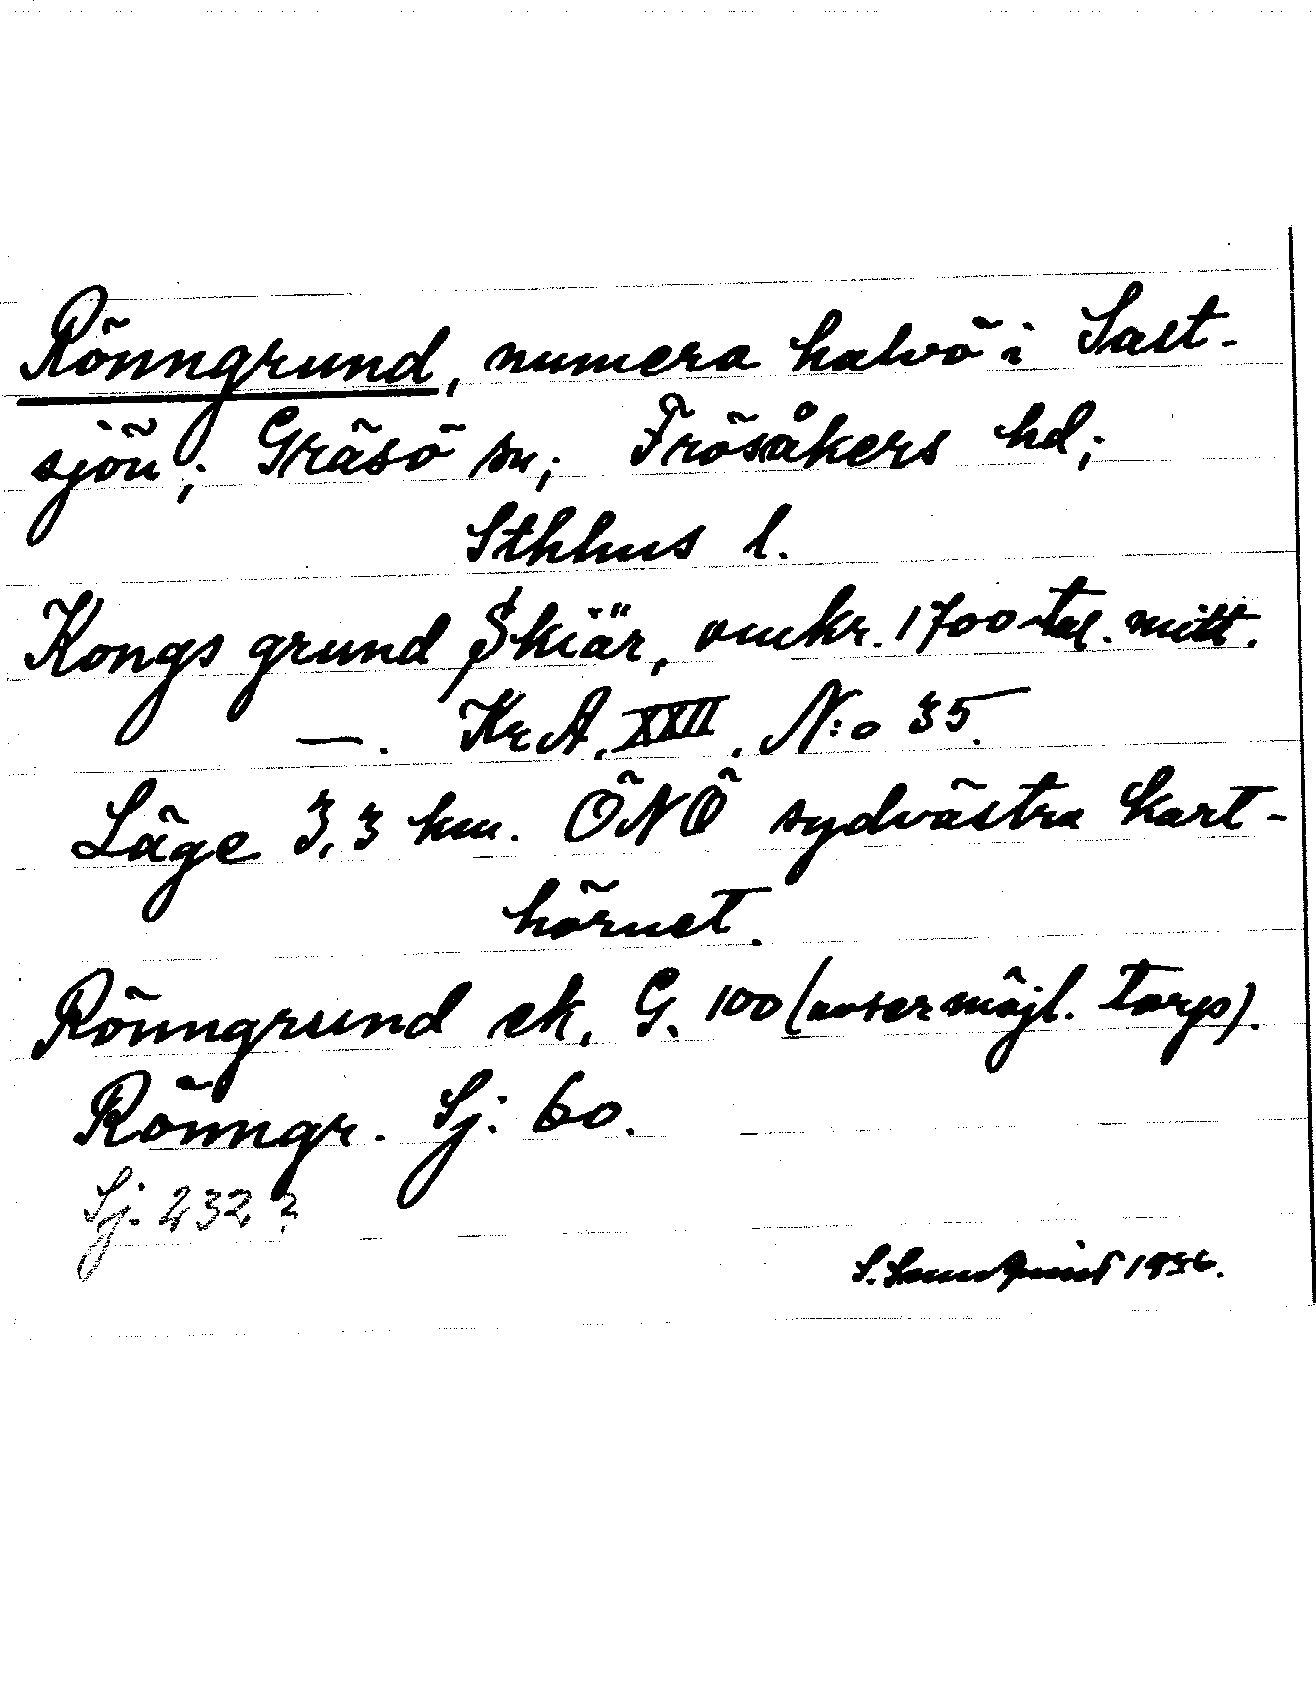 Rönngrund, numera halvö i Salt-
sjön; Gräsö sn; Frösåkers hd;
Sthlms l.
Kongs grund Skiär, omkr. 1700-tal. mitt.
—. KrA. XXII. N:o 35.
Läge 3,3 km. ÖNÖ sydvästra kart-
hörnet.
Rönngrund ek. G. 100 (avser möjl. torp).
Rönngr. Sj: 60.
Sj. 232?
S. 1936.